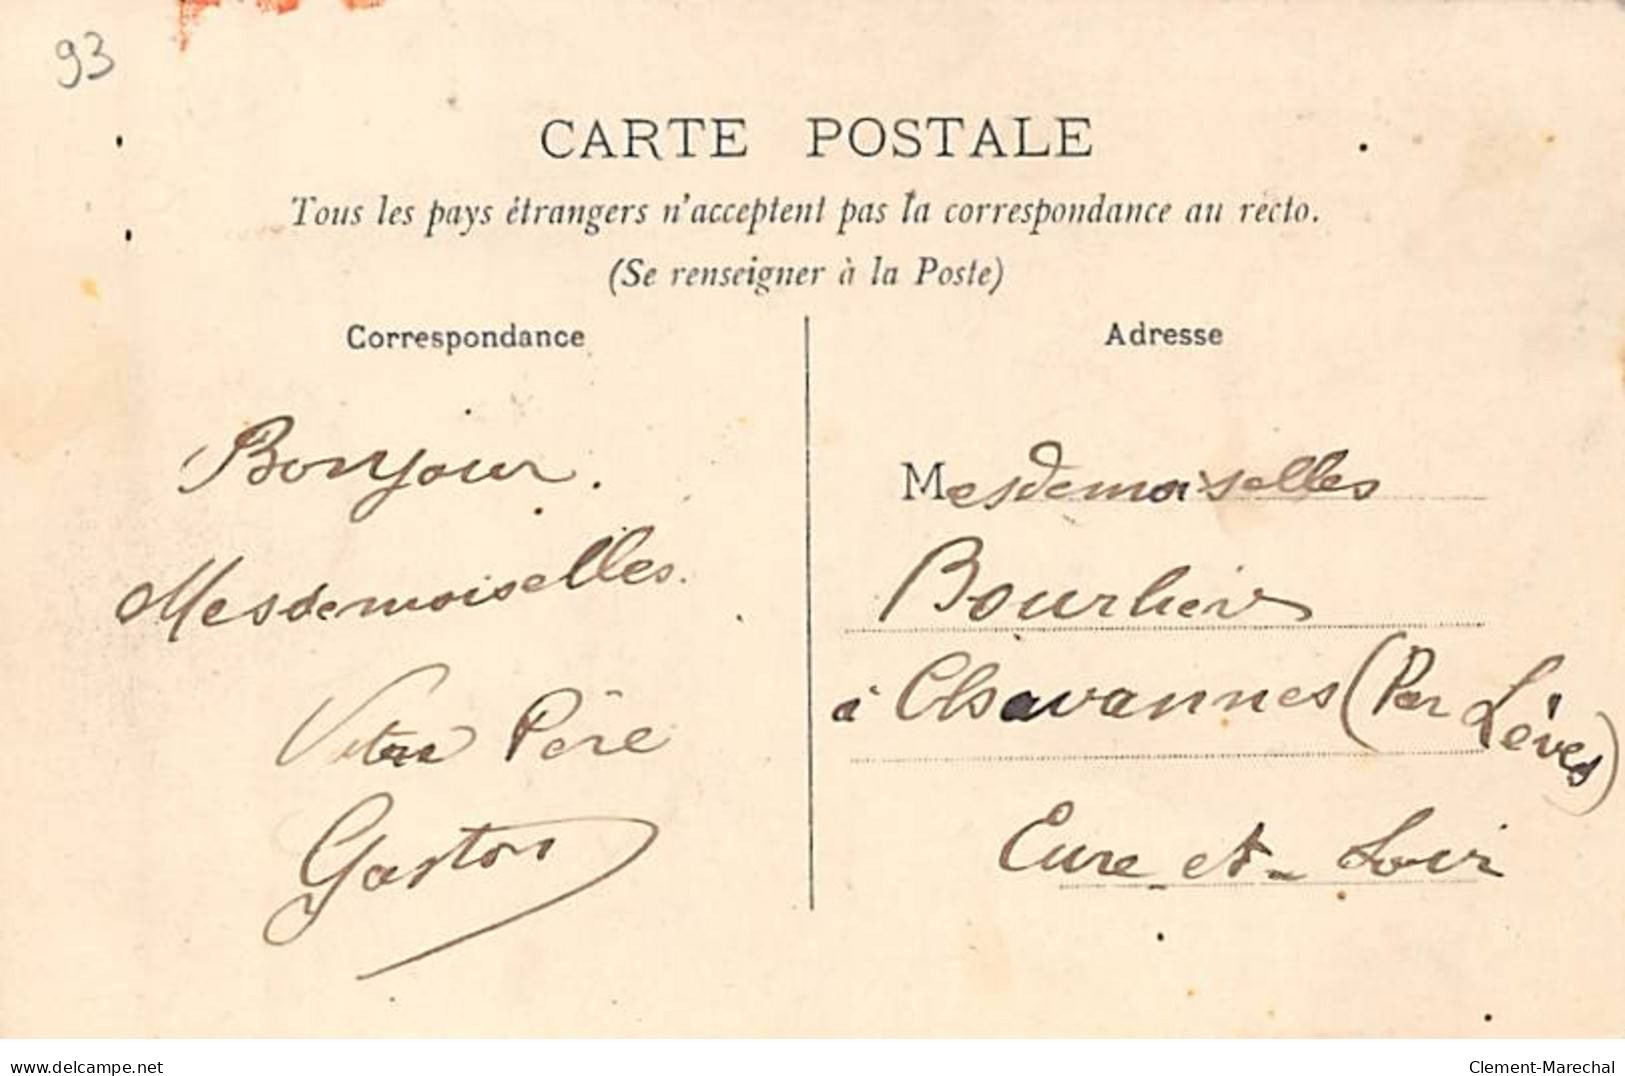 93
CARTE POSTALE
Tous les pays étrangers n'acceptent pas la correspondance au recto.
(Se renseigner à la Poste)
Correspondance
Bonjour.
Mesdemoiselles.
Votre Père
Gaston
Adresse
Mesdemoiselles
Bourlier
à Chavannes (Par Lèves)
Eure et Loir
delcampe.net
Clement-Marechal